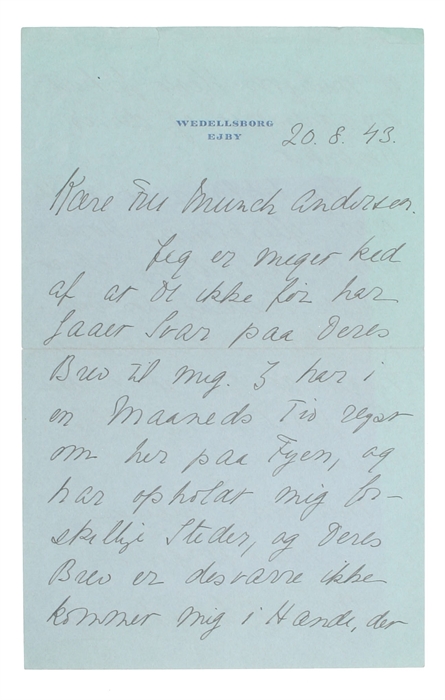 WEDELLSBORG
EJBY
20. 8. 43.
Kære Fru Munch Andersen.
Jeg er meget ked
af at De ikke før har
faaet Svar paa Deres
Brev til mig. J har i
en Maaneds Tid rejst
om her paa Fyen, og
har opholdt mig for-
skellige Steder, og Deres
Brev er desværre ikke
kommet mig i Hænde, der